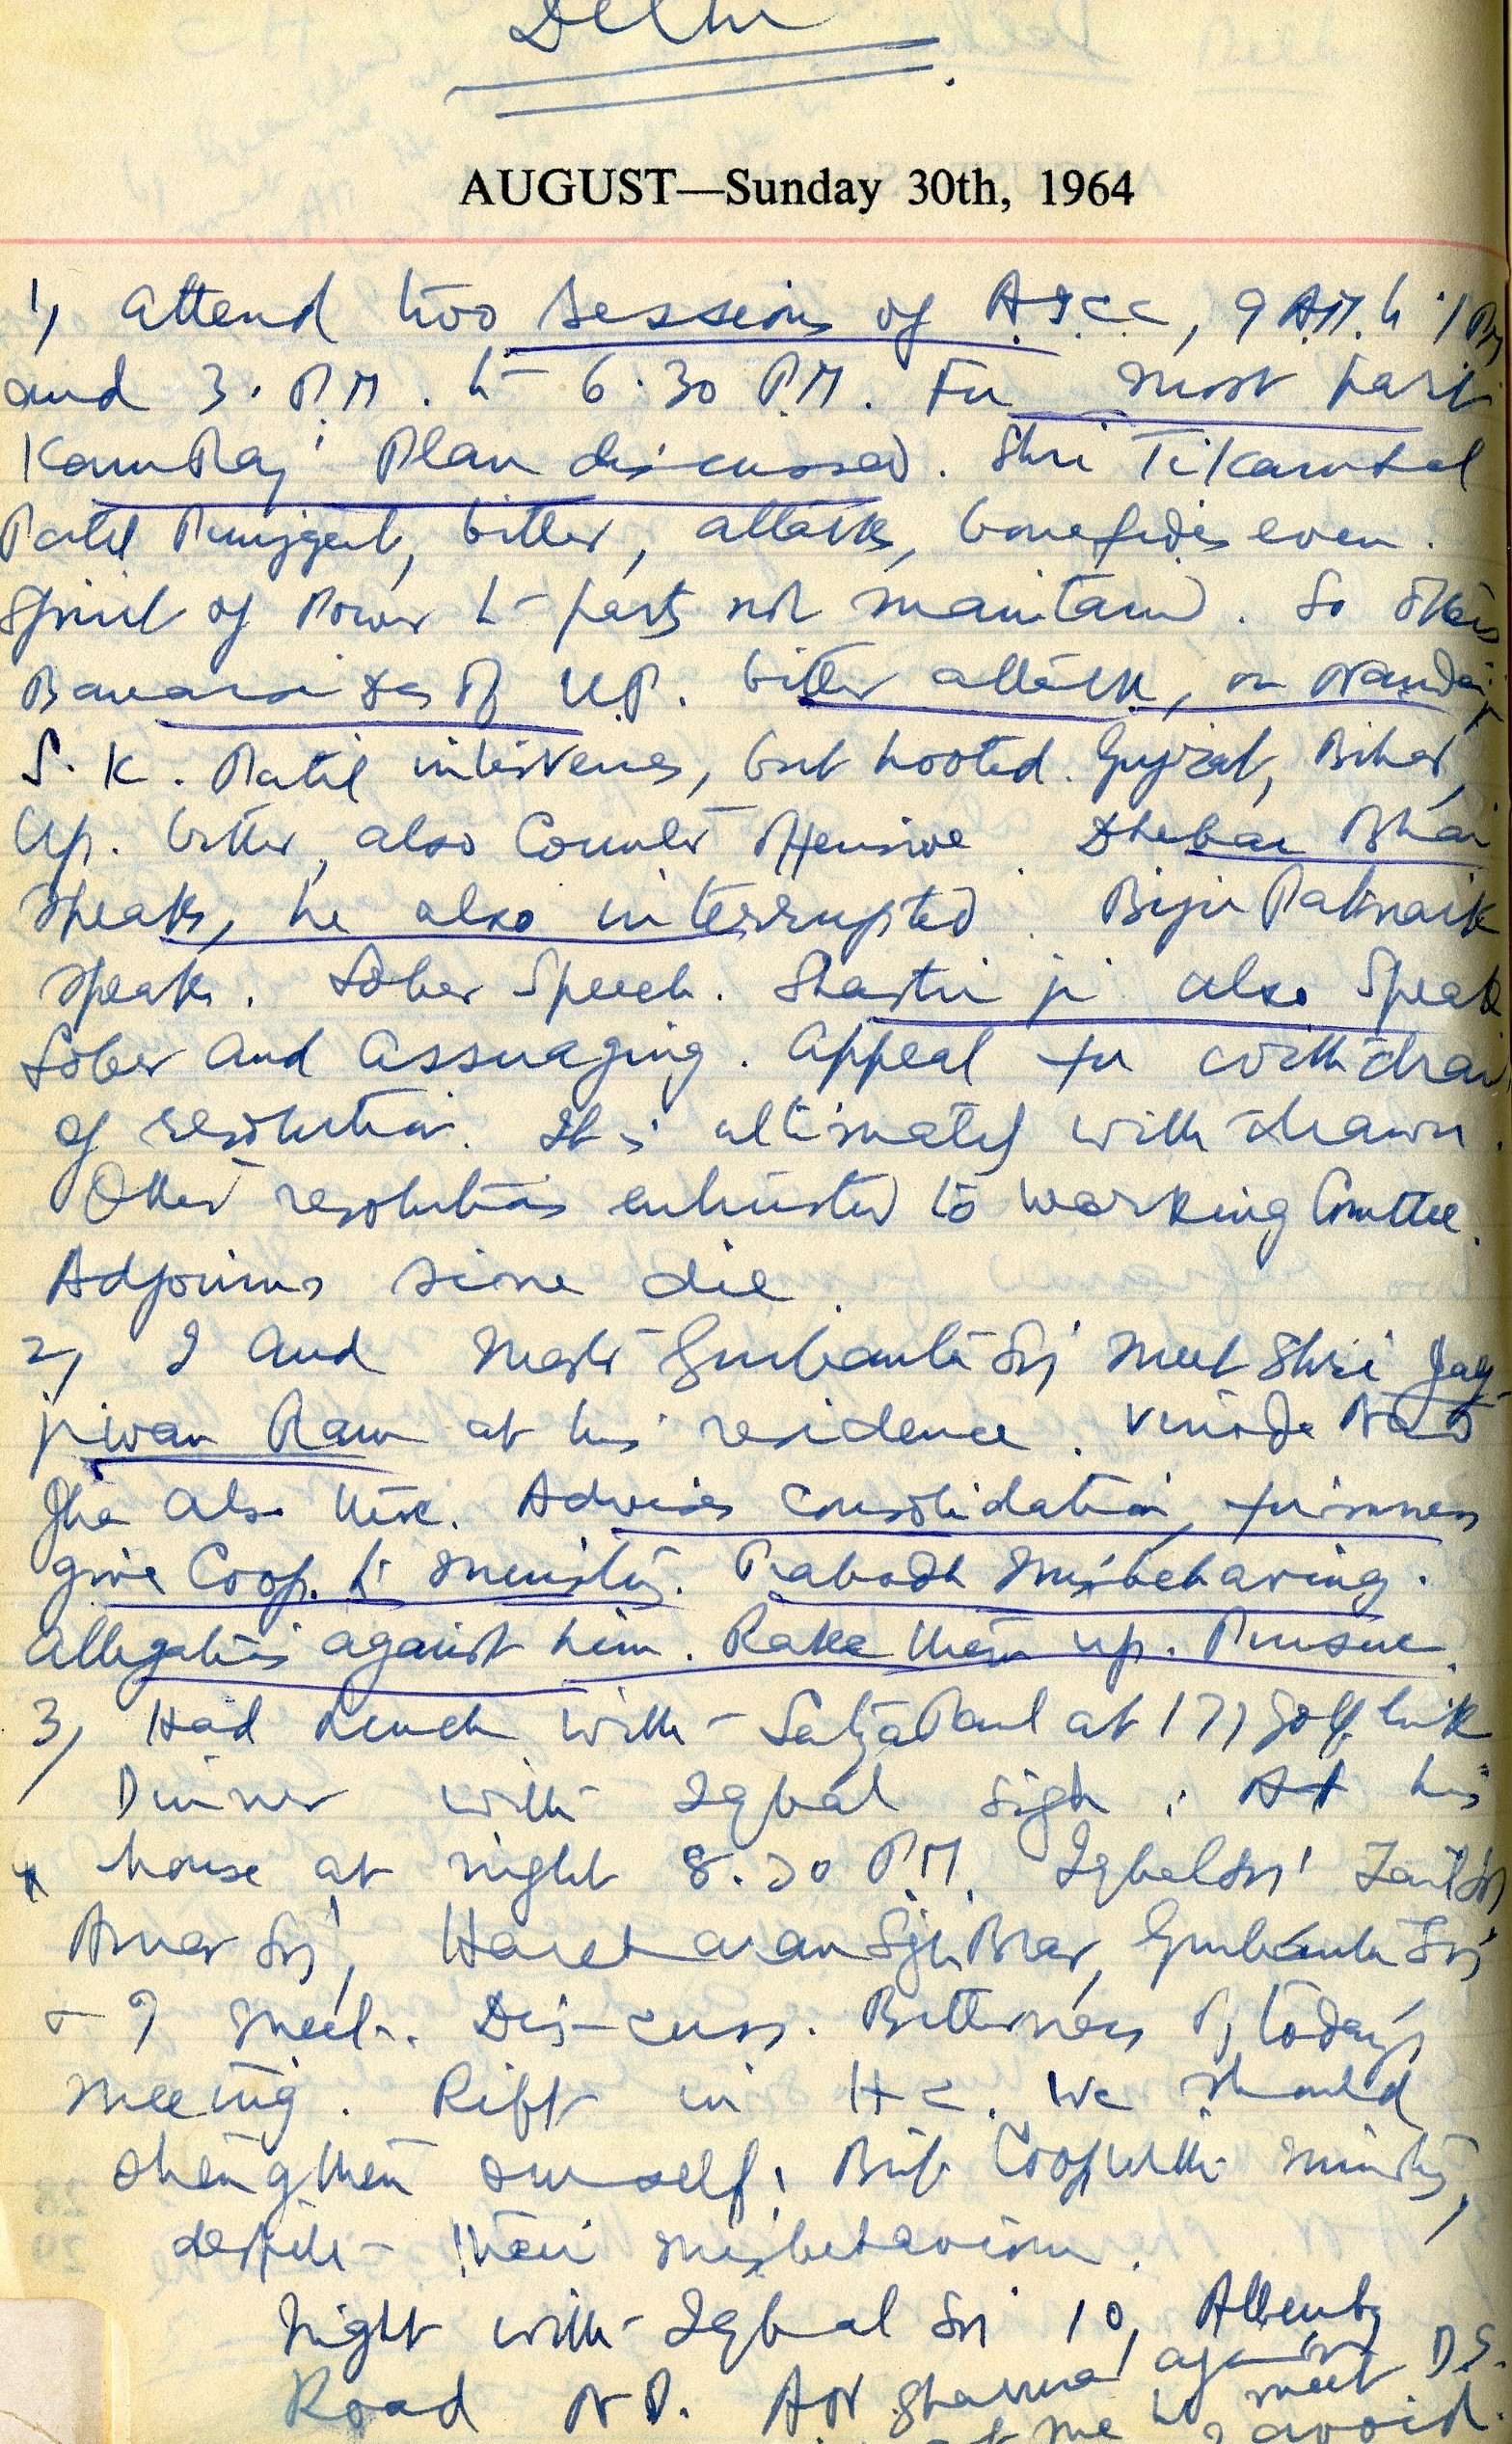 Delhi
AUGUST—Sunday 30th, 1964
1) Attend two sessions of A.I.C.C, 9 A.M. to 1 PM
and 3. P.M. to 6.30 P.M. For most part
KamRaj Plan discussed. Shri Tikamlal
Patel bitter, attacks, bonafides even.
Spirit of Power to party not maintained. So others
Banarsi Das of U.P. bitter attack, on Nandaji
S. K. Patil intervenes, but hooted. Gujrat, Bihar,
Up. bitter, also Counter Offensive. Dhebar Bhai
speaks, he also interrupted. Biju Patnaik
speaks. Sober Speech. Shastri ji also Speaks
Sober and assuaging. Appeal for withdrawl
of resolution. It is ultimately withdrawn.
Other resolutions entrusted to Working Comttee.
Adjourns sine die.
2) I and Master Gurbanta Sij meet Shri Jag-
jiwan Ram at his residence. Vinoda Nand
Jha also there. Advises consolidation, firmness
give Coop. to ministry. Prabodh misbehaving.
Allegations against him. Rake them up. Pursue.
3) Had Lunch with SatyaPaul at 177 Golf Link
Dinner with Iqbal Sigh. At his
house at night 8.30 P.M. Iqbal Sij Zail Sij
Amar Sij, Harcharan Sigh Brar, Gurbanta Sij
& I meet. Dis-cuss. Bitterness of today's
meeting. Rift in H C. We should
strengthen ourself. But Coop with ministry,
despite their misbehaviour.
Night with Iqbal Sij 10, Allenby
Road N D. A N Sharma against D.S.
meet
me I avoid.